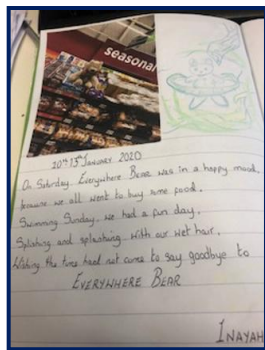 seasonal
20th 13th January 2020
On Saturday, Everywhere Bear was in a happy mood,
because we all went to buy some food.
Swimming Sunday, we had a fun day,
Splishing and splashing with our wet hair,
Wishing the time had not come to say goodbye to
EVERYWHERE BEAR
INAYAH